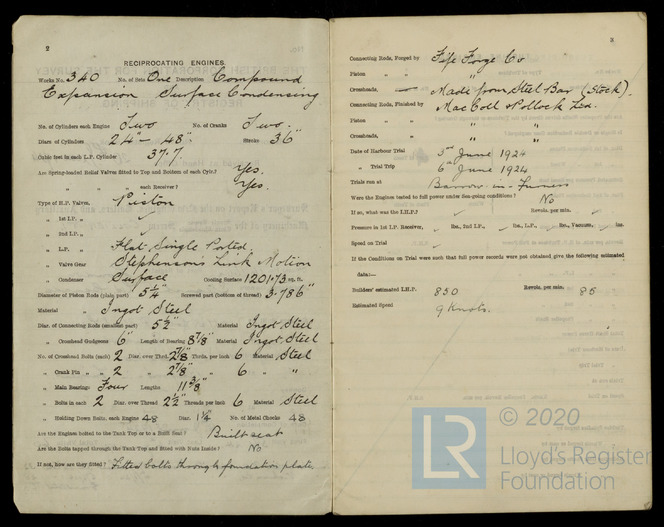 2
RECIPROCATING ENGINES.
Works No. 340 No. of Sets One Description Compound
Expansion Surface Condensing
No. of Cylinders each Engine Two No. of Cranks Two.
Diam of Cylinders 24" — 48". Stroke 36"
Cubic feet in each L.P. Cylinder 37.7.
Are Spring-loaded Relief Valves fitted to Top and Bottom of each Cylr? Yes.
" " each Receiver? Yes.
Type of H.P. Valves, Piston
" 1st I.P. " ✓
" 2nd I.P. " ✓
" L.P. " Flat Single Ported.
" Valve Gear Stephenson's Link Motion
" Condenser Surface Cooling Surface 1201.73 sq. ft.
Diameter of Piston Rods (plain part) 5¼" Screwed part (bottom of thread) 3.786"
Material " Ingot Steel
Diar. of Connecting Rods (smallest part) 5½" Material Ingot Steel
" Crosshead Gudgeons 6" Length of Bearing 8⅞" Material Ingot Steel
No. of Crosshead Bolts (each) 2 Diar. over Thrd. 2⅞" Thrds. per inch 6 Material Steel
" Crank Pin " " 2 " 2⅞" " 6 " "
" Main Bearings Four Lengths 11⅜"
" Bolts in each 2 Diar. over Thread 2½" Threads per inch 6 Material Steel
" Holding Down Bolts, each Engine 48 Diar. 1¼" No. of Metal Chocks 48
Are the Engines bolted to the Tank Top or to a Built Seat? Built seat
Are the Bolts tapped through the Tank Top and fitted with Nuts Inside? No
If not, how are they fitted? Fitted bolts through foundation plate.
3
Connecting Rods, Forged by Fife Forge Co
Piston " " "
Crossheads, Made from Steel Bar (Stock).
Connecting Rods, Finished by MacColl Pollock Ltd.
Piston " " "
Crossheads, " "
Date of Harbour Trial 3rd June 1924
" Trial Trip 6th June 1924
Trials run at Barrow-in-Furness
Were the Engines tested to full power under Sea-going conditions? No
If so, what was the I.H.P.? ✓ Revols. per min. ✓
Pressure in 1st I.P. Receiver, ✓ lbs., 2nd I.P., ✓ lbs., L.P., ✓ lbs., Vacuum, ✓ ins.
Speed on Trial ✓
If the Conditions on Trial were such that full power records were not obtained give the following estimated
data:—
Builders' estimated I.H.P. 850 Revols. per min. 86
Estimated Speed 9 Knots.
© 2020
LR
Lloyd's Register
Foundation